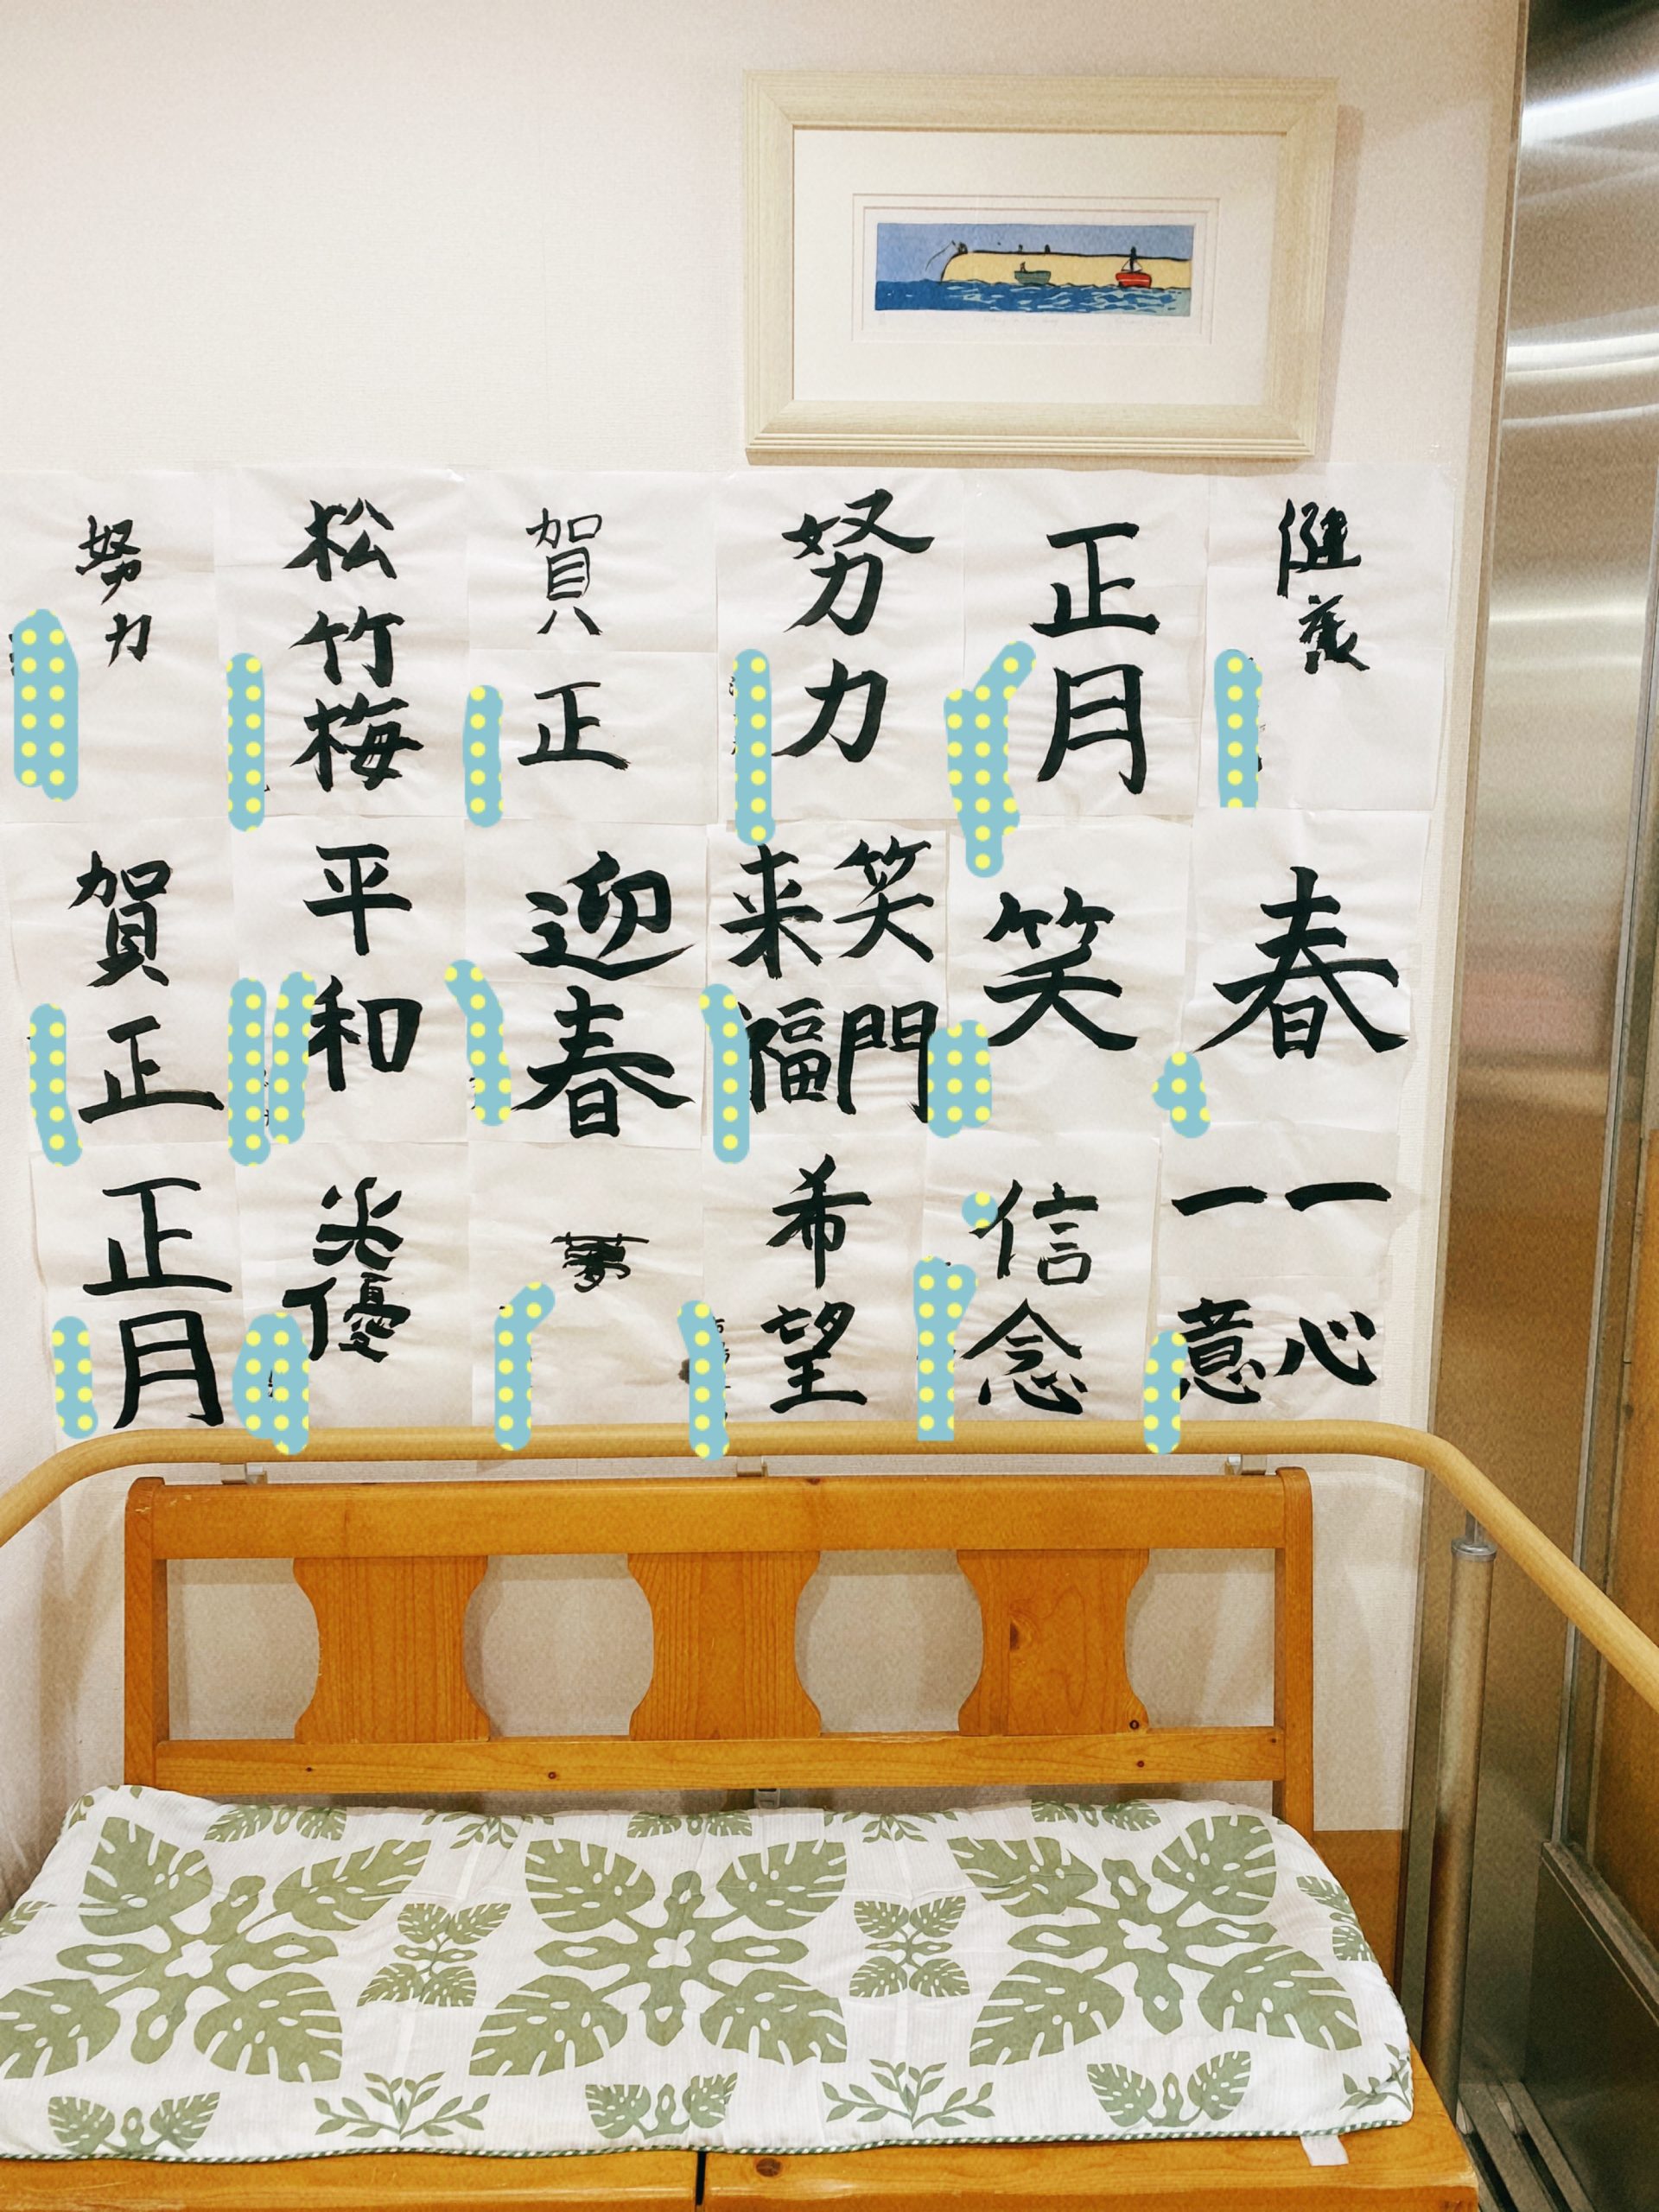 健養
正月
努力
賀正
松竹梅
努力
春
笑
笑門
来福
迎春
平和
賀正
一心
一意
信念
希望
夢
優
正月